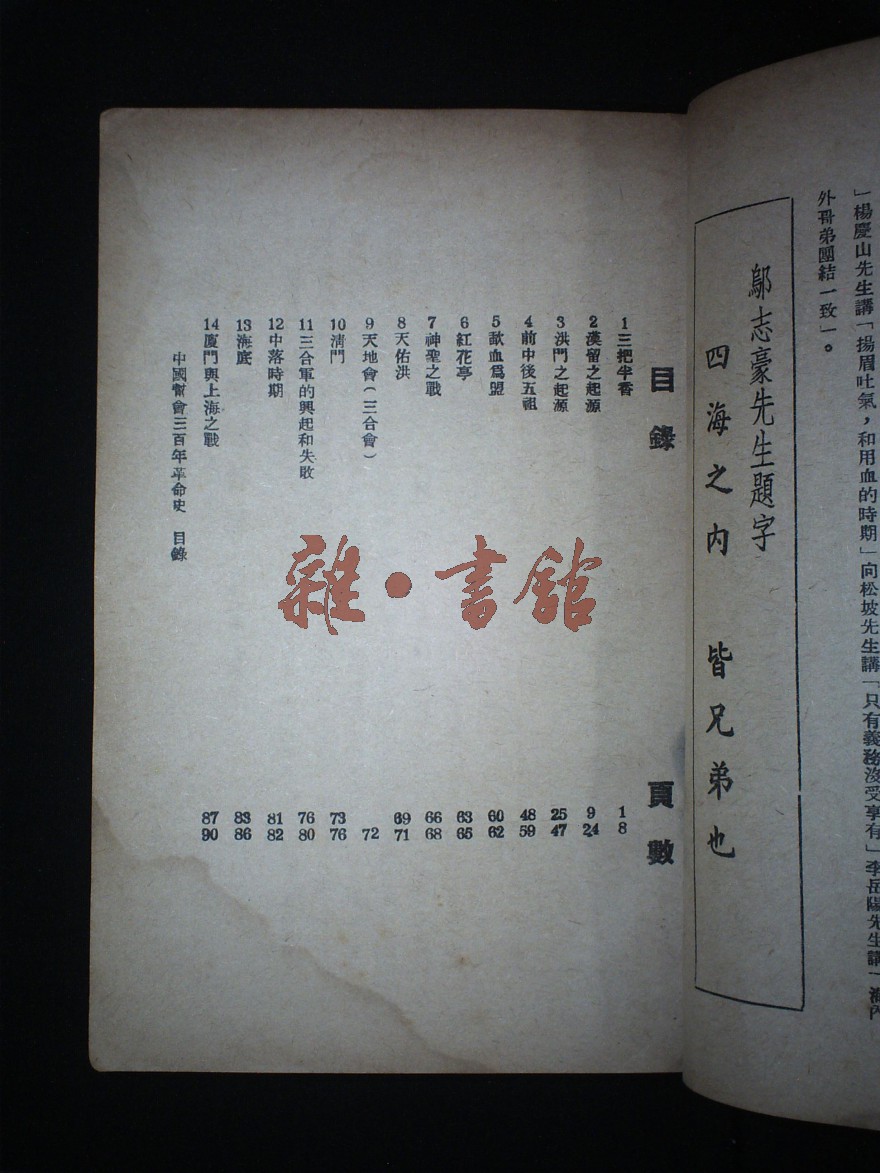 」楊慶山先生講「揚眉吐氣，和用血的時期」向松坡先生講「只有義務沒受享有」李岳陽先生講「海內
外哥弟團結一致」。
鄔志豪先生題字
四海之內 皆兄弟也
目錄 頁數
1三把半香 1 8
2漢留之起源 9 24
3洪門之起源 25 47
4前中後五祖 48 59
5歃血爲盟 60 62
6紅花亭 63 65
7神聖之戰 66 68
8天佑洪 69 71
9天地會（三合會） 72
10清門 73 76
11三合軍的興起和失敗 76 80
12中落時期 81 82
13海底 83 86
14廈門與上海之戰 87 90
中國幫會三百年革命史 目錄
雜·書館